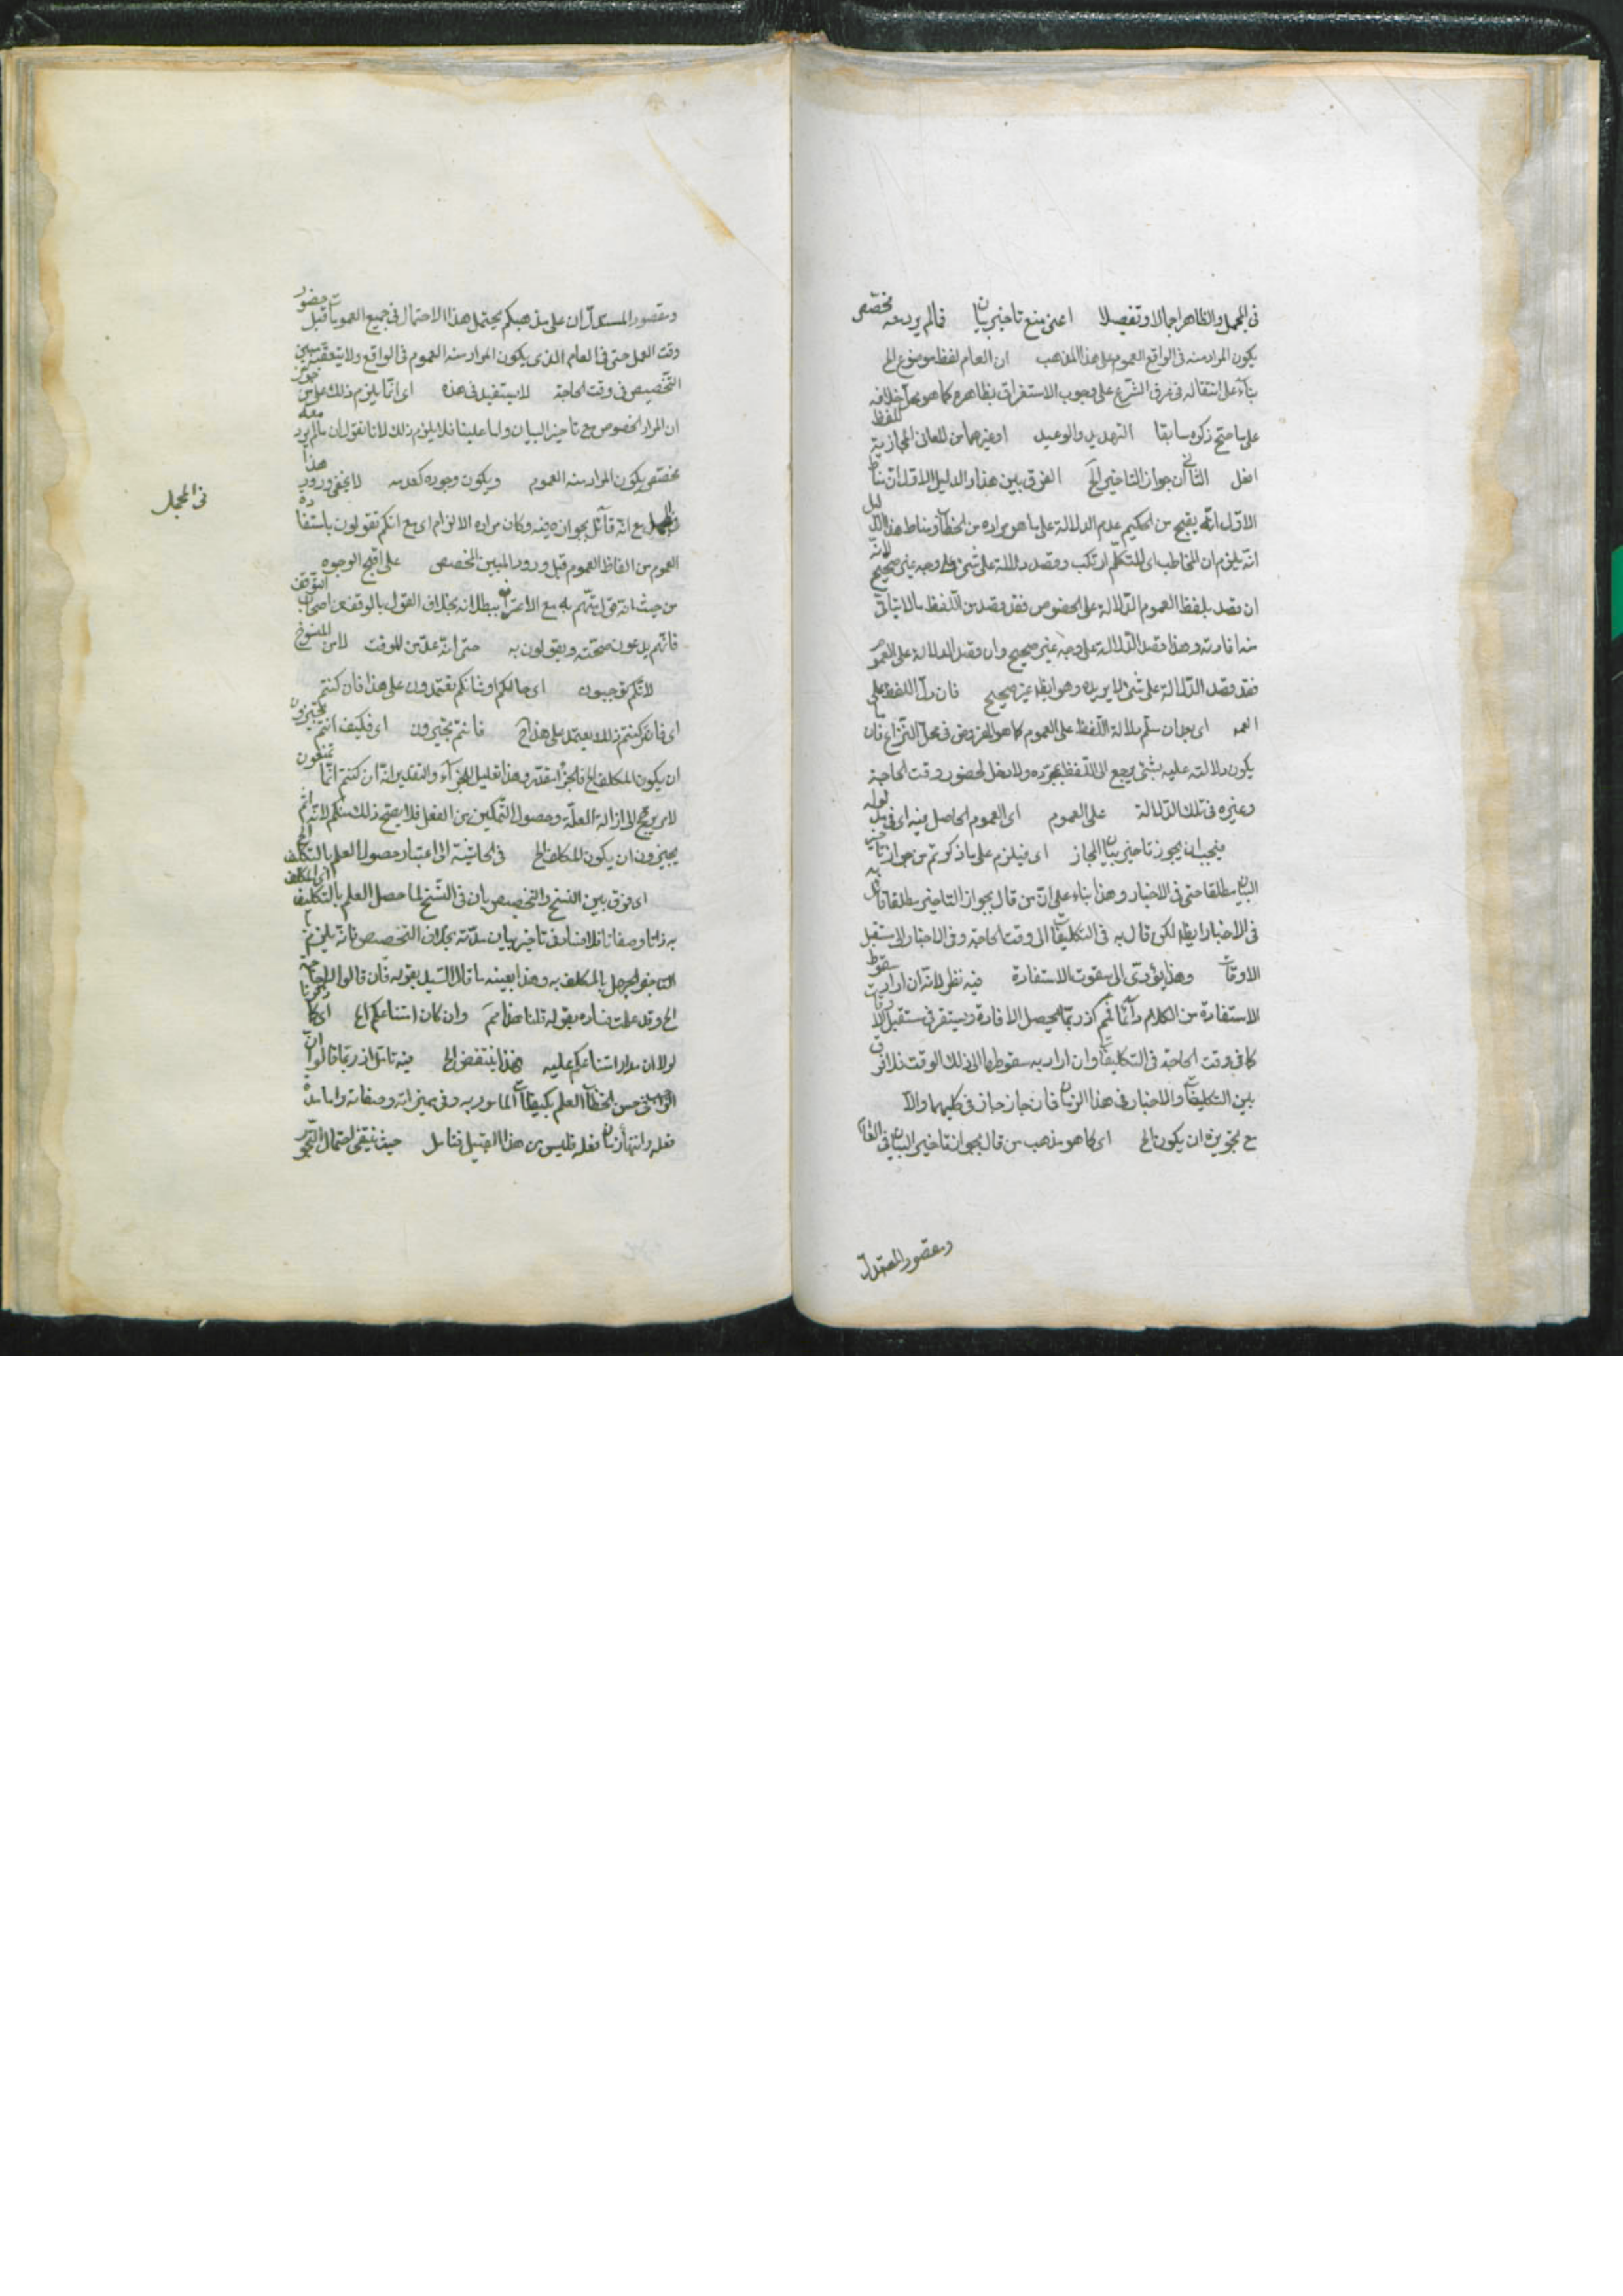 فى المجمل والظاهر اجمالا وتفصيلا اعنى منع تاخير بيان فمالم يرد معه مخصّص
يكون المراد منه فى الواقع العموم على هذا المذهب ان العام لفظ موضوع الخ
بناء على انتقاله فى عرف الشرع على وجوب الاستغراق بظاهره كما هو خلافه
على ما صحّ ذكره سابقا التهديد والوعيد او غيرهما من المعانى المجازية اللفظ
افعل الثانى ان جواز التاخير الخ الفرق بين هذا والدليل الاول ان مناط
الاوّل انّه يقبح من الحكيم عدم الدلالة على ما هو مراده من الخطاب ومناط هذا الدليل
انّه يلزم ان المخاطب اى المتكلّم ارتكب وقصد دلالة على شئ على وجه غير صحيح لانّه
ان قصد بلفظ العموم الدّلالة على الخصوص فقد قصد من اللّفظ مالا يتاتى
منه افادته وهذا قصد الدّلالة على وجه غير صحيح وان قصد الدلالة على العموم
فقد قصد الدّلالة على شئ لا يريده وهو ايضا غير صحيح فان دلّ اللفظ على
العمو اى بعد ان سلّم دلالة اللّفظ على العموم كما هو المفروض فى محل النّزاع فان
يكون دلالته عليه بشئ يرجع الى اللّفظ بمجرّده ولا دخل لحضور وقت الحاجة
وغيره فى تلك الدّلالة على العموم اى العموم الحاصل فيه اى فى
فيجب ان يجوز تاخير بيان المجاز اى فيلزم على ما ذكرتم من جواز تاخير
البيان مطلقا حتى فى الاخبار وهذا بناء على انّ من قال بجواز التاخير مطلقا قال به
فى الاخبار ايضا لكن قال به فى التكليفات الى وقت الحاجة وفى الاخبار الى مستقبل
الاوقات وهذا يؤدّى الى سقوط الاستفادة فيه نظر لانّه ان اراد سقوط
الاستفادة من الكلام دائما فمم اذ ربّما يحصل الافادة ويستقر فى مستقبل الاوقات
كما فى وقت الحاجة فى التكليفات وان اراد به سقوطها الى ذلك الوقت فلا فرق
بين التكليفات والاخبار فى هذا الزمان فان جاز جاز فى كليهما والّا
مع تجويزه ان يكون الخ اى كما هو مذهب من قال بجواز تاخير البيان فى
ومقصود المستدلّ
ومقصود المستدلّ ان على مذهبكم يحتمل هذا الاحتمال فى جميع العمومات قبل حضور
وقت العمل حتى فى العام الذى يكون المراد منه العموم فى الواقع ولا يتعقّبه مبين
التّخصيص فى وقت الحاجة لا يستفيد فى هذه اى انّما يلزم ذلك على من جوّز
ان المراد الخصوص مع تاخير البيان واما علينا فلا يلزم ذلك لانا نقول ان مالم يرد معه
مخصّص يكون المراد منه العموم ويكون وجوده كعدمه لا يخفى ورود هذا
فى المجمل
مع انّه قائل بجوازه فيه وكان مراده الالزام اى مع انكم تقولون باستفادة
العموم من الفاظ العموم قبل ورود المبين المخصص على اقبح الوجوه
من حيث انّه قول منهم به مع الاعتراف ببطلانه بخلاف القول بالوقف من اصحاب التوقف
فانّهم يدعون صحّته ويقولون به حتى انّه علّق من الوقت لامن المنسوخ
لانّكم توجبون اى حالكم او شانكم تعتمدون على هذا فان كنتم
اى فان كنتم ذلك لا يعتمد على هذا الخ فانتم تجيزون اى فكيف انتم تجيزون
ان يكون المكلف الخ فالجزاء مقدّر وهذا تعليل للجزاء والتقدير انّه ان كنتم انّما تمنعون
لامر يرجع الى ازالة العلّة وحصول التّمكين من الفعل فلا يصحّ ذلك منكم لانّكم
يجيزون ان يكون المكلف الخ فى الحاشية الى اعتبار حصول العلم بالتكلف الخ اى المكلف
اى فرق بين النسخ والتخصيص بان فى النّسخ لما حصل العلم بالتكليف
به ذاتا وصفاتا فلا فساد فى تاخير بيان مدّته بخلاف التخصيص فانّه يلزم من
التاخير الجهل بالمكلف به وهذا بعينه ما قال السّيد بقوله فان قالوا
الخ وقد علمت فساده بقوله قلنا هذا ممّ وان كان امتناعكم الخ اى كما
لولا ان مدار امتناعكم عليه هذا ينتقض الخ فيه تامّل اذ ربّما قالوا انّ
فى حسن الخطاب العلم بكيفيات المامور به وفى مميزاته وصفاته واما مدة
فعله وانتهاء زمان فعله فليس من هذا القبيل فتامل حيث ينتفى احتمال التّجوز